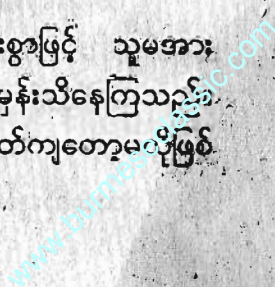 းစွာဖြင့် သူမအား
မှန်းသိနေကြသည်။
တ်ကျတော့မလိုဖြစ်
www.burmeseclassic.com